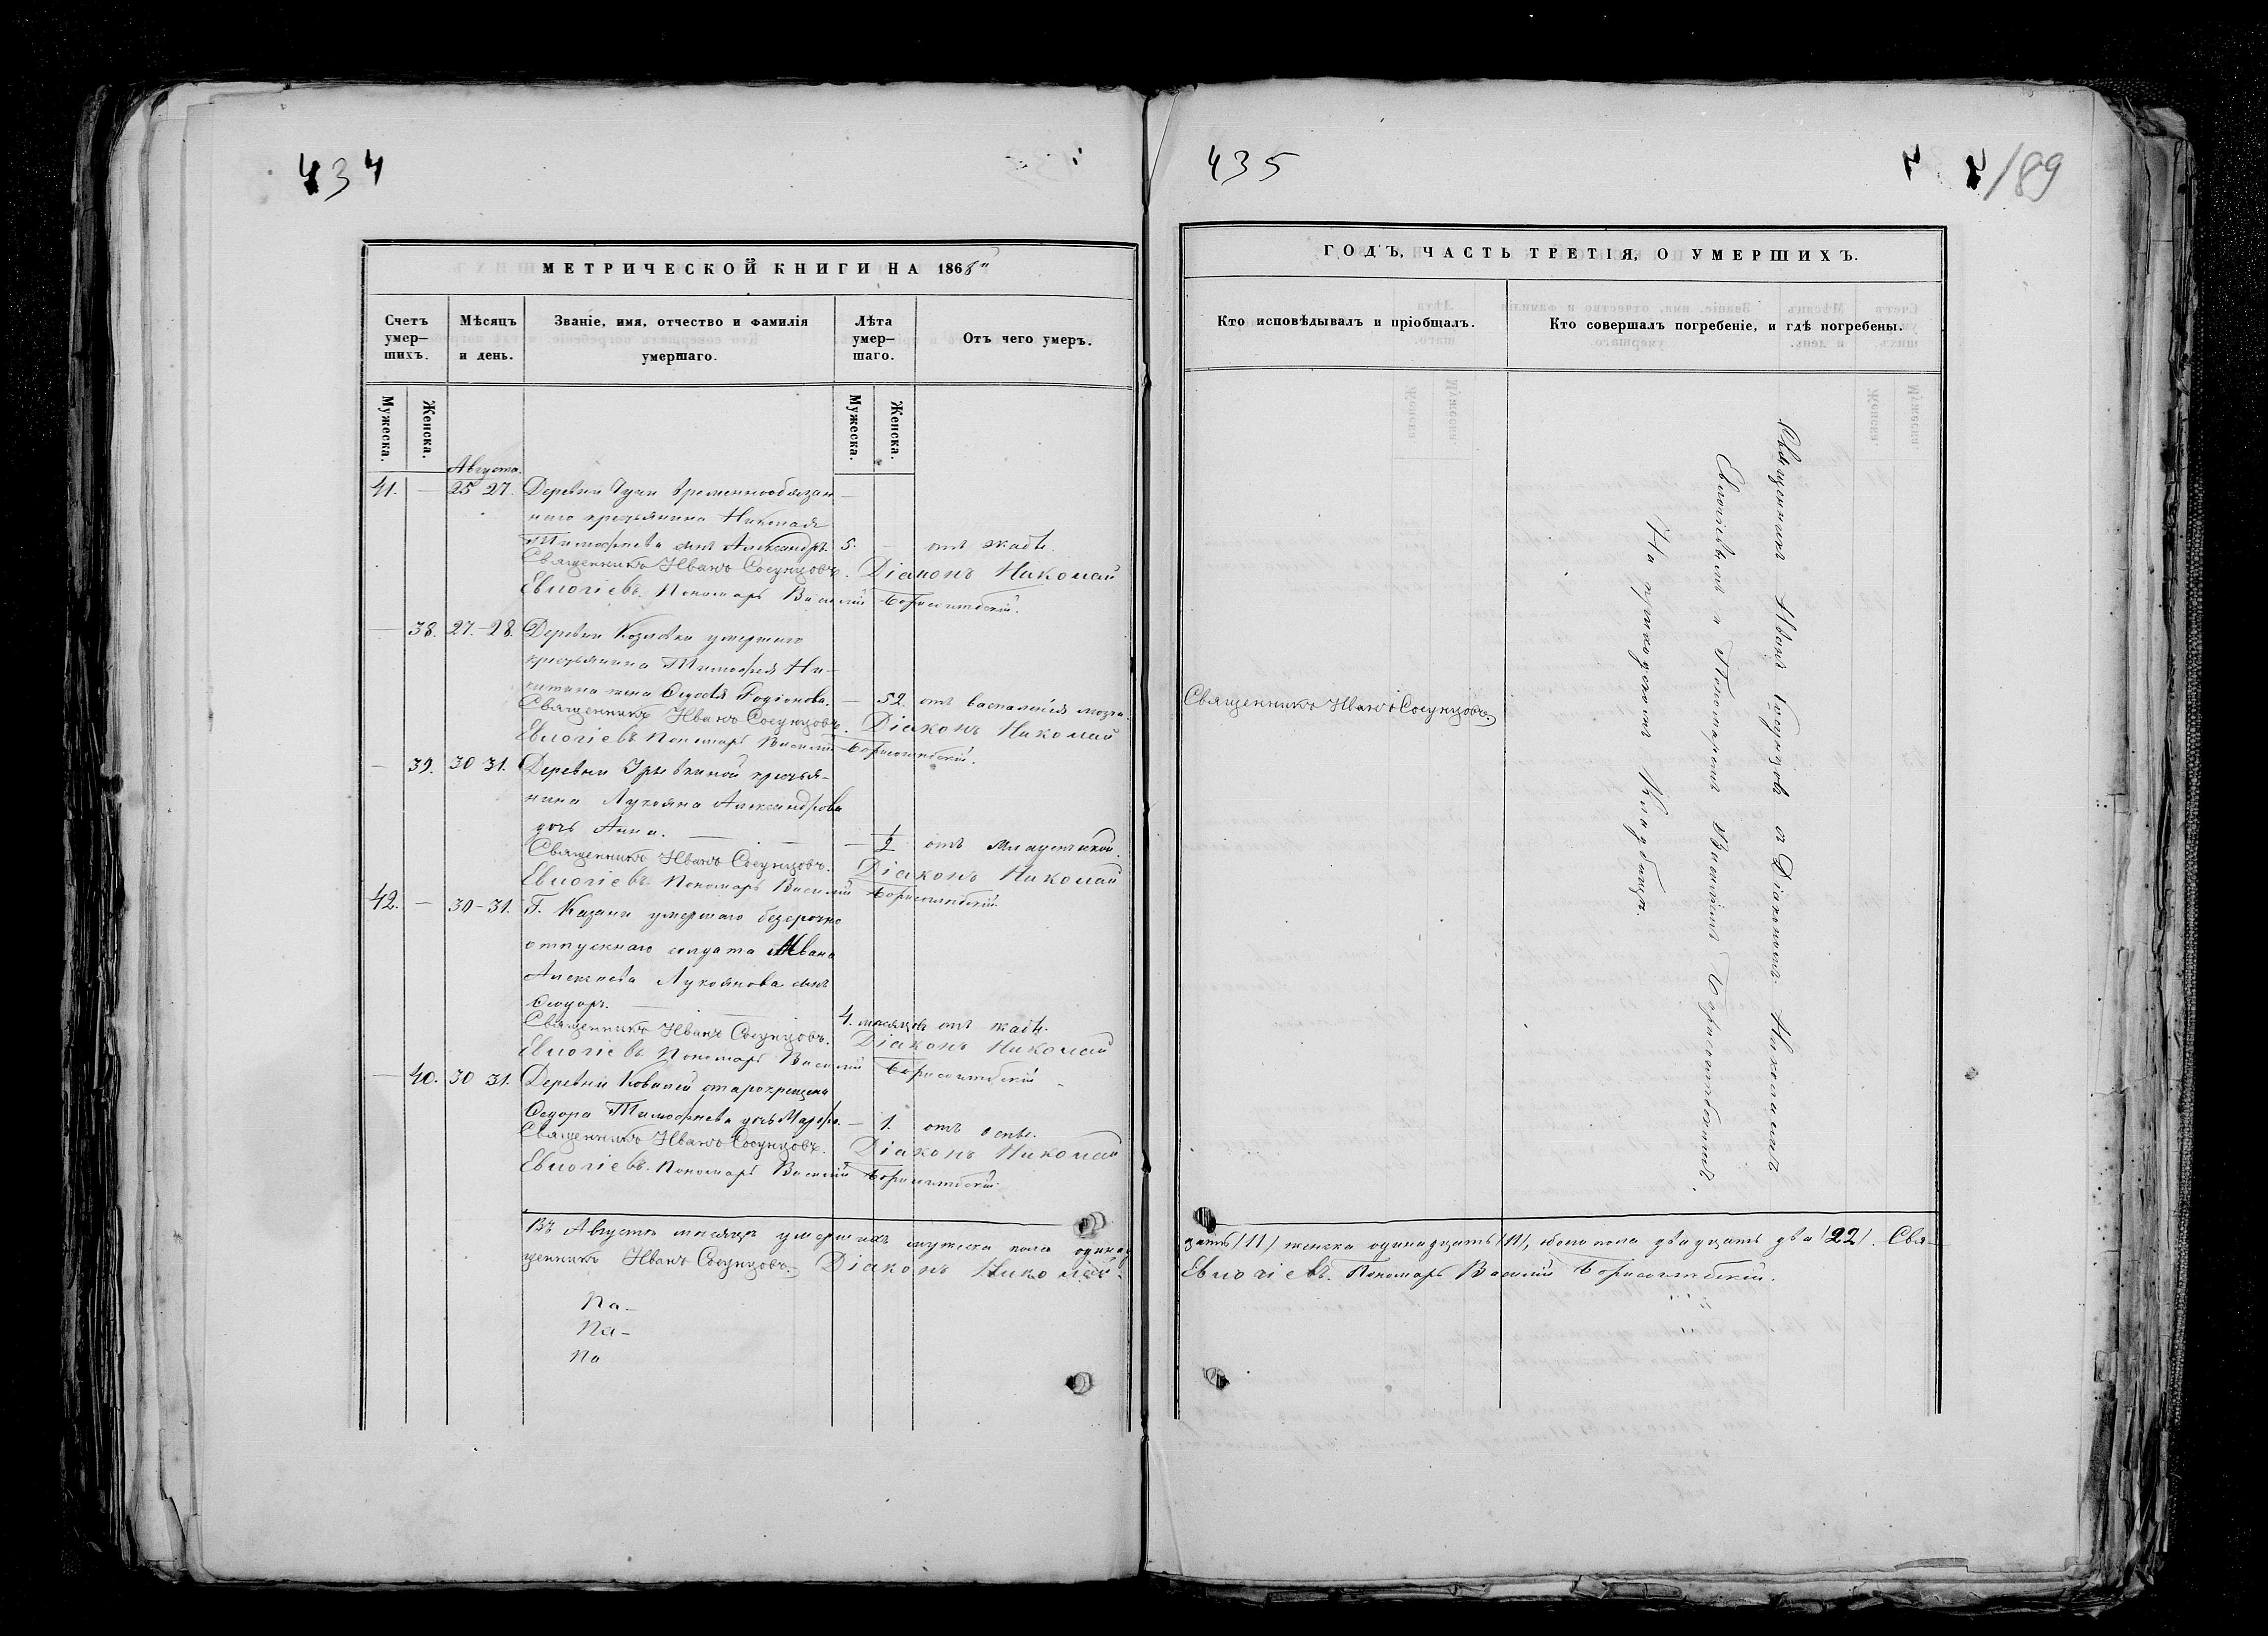 434
МЕТРИЧЕСКОЙ КНИГИ НА 1868
Счетъ умер-шихъ.
Мѣсяцъ и день.
Званіе, имя, отчество и фамилія умершаго.
Лѣта умер-шаго.
Отъ чего умеръ.
Мужеска.
Женска.
Мужеска.
Женска.
Августа.
41. — 25 27. Деревни временнообязан
наго крестьянина Николая
Тимофеева сынъ Александръ. 5. — отъ жабы.
Священникъ Иванъ Сосунцовъ. Діаконъ Николай
Евлогіевъ. Пономарь Василій Борисоглѣбскій.
— 38. 27.-28. Деревни Козловки умершаго
крестьянина Тимофея Ни-
китина жена Ѳедосья Родіонова. — 52. отъ воспаленія мозга.
Священникъ Иванъ Сосунцовъ. Діаконъ Николай
Евлогіевъ. Пономарь Василій Борисоглѣбскій.
— 39. 30 31. Деревни крестья-
нина Лукояна Александрова
дочь Анна. — — 1/2 отъ младенческой.
Священникъ Иванъ Сосунцовъ. Діаконъ Николай
Евлогіевъ. Пономарь Василій Борисоглѣбскій.
42. — 30-31. Г. Казани умершаго безсрочно
отпускнаго солдата Ивана
Алексѣева Лукоянова сынъ
Ѳеодоръ. —
4. мѣсяцовъ отъ жабы.
Священникъ Иванъ Сосунцовъ. Діаконъ Николай
Евлогіевъ. Пономарь Василій Борисоглѣбскій.
— 40. 30 31. Деревни Ковалей старокрещена
Ѳедора Тимофеева дочь Марѳа. — 1. отъ оспы.
Священникъ Иванъ Сосунцовъ. Діаконъ Николай
Евлогіевъ. Пономарь Василій Борисоглѣбскій.
Въ Августѣ мѣсяцѣ умершихъ мужеска пола одинад
ценникъ Иванъ Сосунцовъ. Діаконъ Николай
По-
По-
По
435
189
ГОДЪ, ЧАСТЬ ТРЕТІЯ, О УМЕРШИХЪ.
Кто исповѣдывалъ и пріобщалъ.
Кто совершалъ погребеніе, и гдѣ погребены.
Священникъ Иванъ Сосунцовъ.
Священникъ Иванъ Сосунцовъ съ Діакономъ Николаемъ
Евлогіевымъ и Пономаремъ Василіемъ Борисоглѣбскимъ.
На приходскомъ кладбищѣ.
цать /11/ женска одинадцать /11/, обоего пола двадцать два /22/. Свя-
Евлогіевъ. Пономарь Василій Борисоглѣбскій.